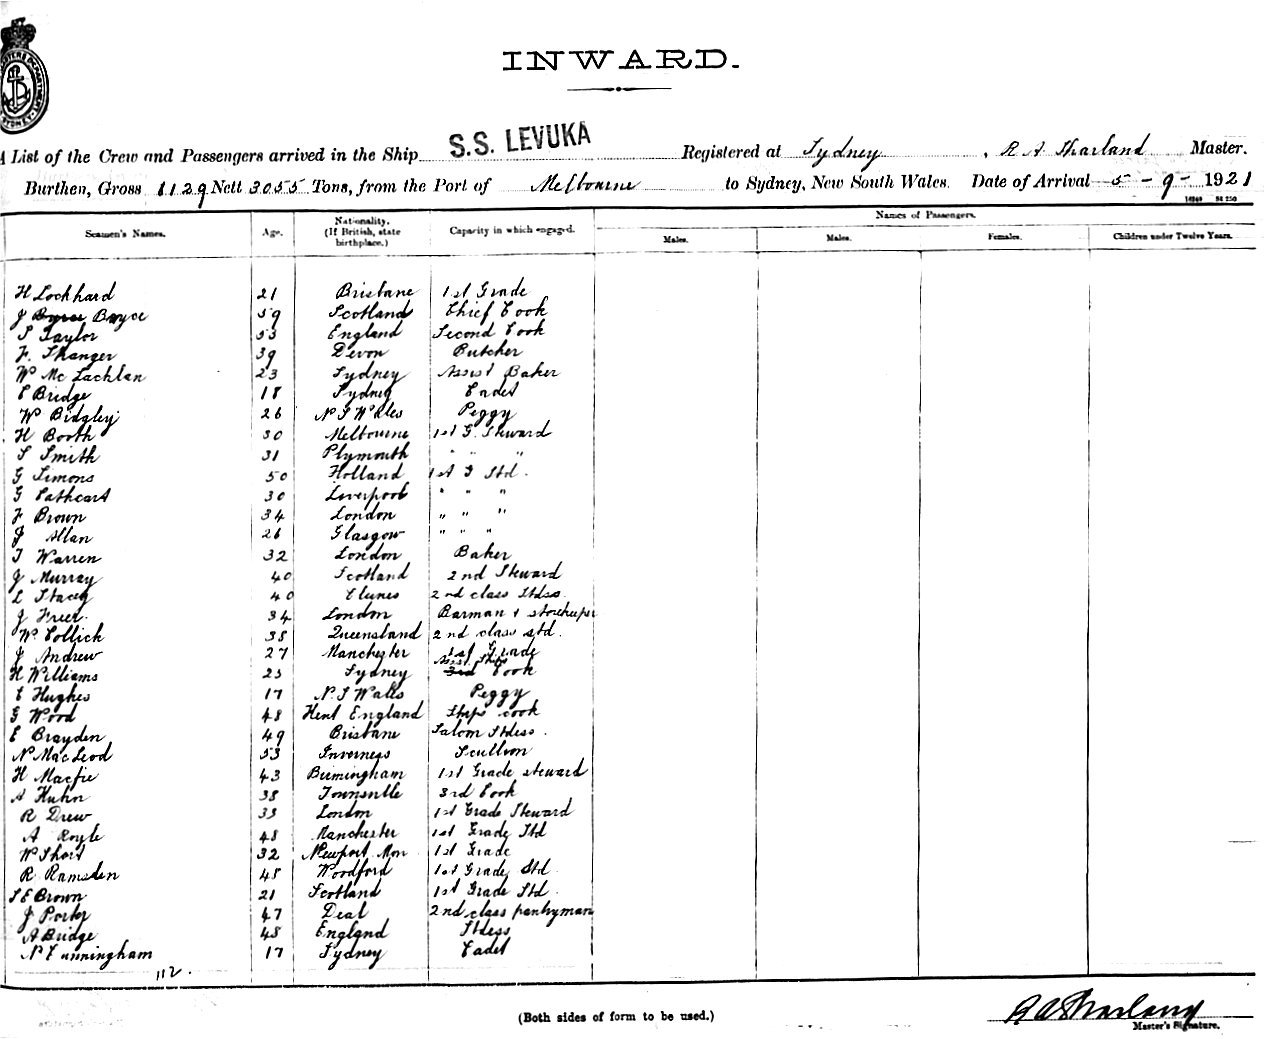 INWARD.
A List of the Crew and Passengers arrived in the Ship S.S. LEVUKA Registered at Sydney, R A Sharland Master.
Burthen, Gross 6129 Nett 3055 Tons, from the Port of Melbourne to Sydney, New South Wales. Date of Arrival 5 - 9 - 1921
Seamen's Names. Age. Nationality. (If British, state birthplace.) Capacity in which engaged. Names of Passengers.
Males. Males. Females. Children under Twelve Years.
H Lockhard 21 Brisbane 1st Grade
J Bryce 59 Scotland Chief Cook
S Taylor 53 England Second Cook
F. Stranger 39 Devon Butcher
W McLachlan 23 Sydney Assist Baker
C Bridge 18 Sydney Cadet
W Bidgley 26 N S Wales Peggy
H Booth 30 Melbourne 1st G. Steward
S Smith 31 Plymouth " " "
G Simons 50 Holland 1st G Std.
G Cathcart 30 Liverpool " " "
F Brown 34 London " " "
J Allan 26 Glasgow " " "
T Warren 32 London Baker
J Murray 40 Scotland 2nd Steward
E Stacey 40 Clunes 2nd class Stdss.
J Freer. 34 London Barman & storekeeper
W. Collick 38 Queensland 2nd class std.
J Andrew 27 Manchester 1st Grade
H Williams 25 Sydney Asst Ships Cook
E Hughes 17 N. S Wales Peggy
G Wood 48 Kent England Ships cook
E Brayden 49 Brisbane Saloon Stdess.
N MacLeod 53 Inverness Scullion
H Macfie 43 Birmingham 1st Grade steward
A Kuhn 38 Townsville 3rd Cook
R Drew 33 London 1st Grade Steward
A Royle 48 Manchester 1st Grade Std
W Short 32 Newport Mon 1st Grade
R Ramsden 48 Woodford 1st Grade Std.
S E Brown 21 Scotland 1st Grade Std.
J Porter 47 Deal 2nd class pantryman
A Bridge 48 England Stdess
N Cunningham 17 Sydney Cadet
112.
(Both sides of form to be used.)
R A Sharland
Master's Signature.